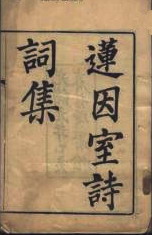 蓮因室詩
詞集